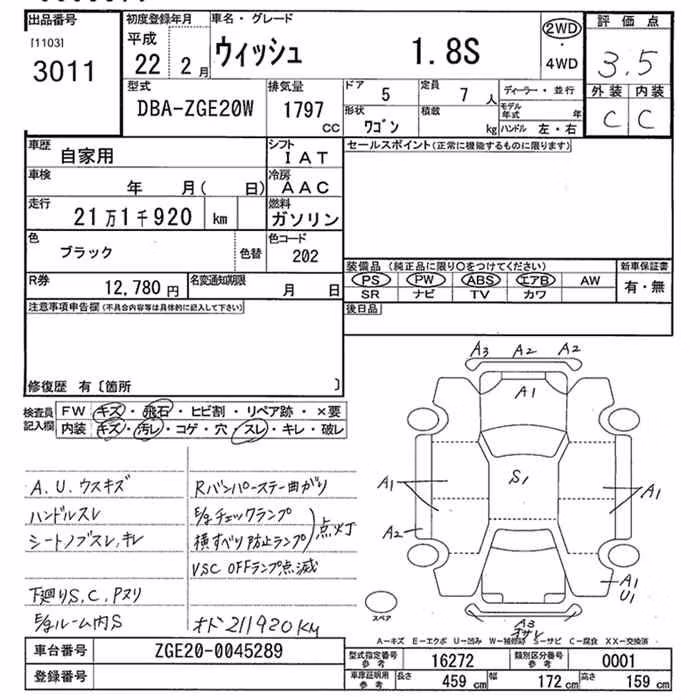 出品番号
[1103]
3011
初度登録年月
平成
22 年 2 月
車名・グレード
ウィッシュ 1.8S
2WD
・
4WD
評価点
3.5
外装 内装
C C
型式
DBA-ZGE20W
排気量
1797
CC
ドア 5
定員 7 人
形状 ワゴン
積載 kg
ディーラー・並行
モデル年式 年
ハンドル 左・右
車歴 自家用
シフト IAT
車検 年 月( 日)
冷房 AAC
走行 21万1千920 km
燃料 ガソリン
色 ブラック
色替
色コード 202
R券 12,780 円
名変通知期限 月 日
セールスポイント(正常に機能するものに限ります)
装備品(純正品に限り○をつけてください)
新車保証書
PS PW ABS エアB AW
有・無
SR ナビ TV カワ
後日品
注意事項申告欄(不具合内容等は具体的に記入して下さい)
修復歴 有〔箇所 〕
検査員
記入欄
FW キズ・飛石・ヒビ割・リペア跡・×要
内装 キズ・汚レ・コゲ・穴・スレ・キレ・破レ
A.U.ウスキズ
ハンドルスレ
シートノブスレ,キレ
下廻りS,C,Pヌリ
E/gルーム内S
Rバンパーステー曲がり
E/gチェックランプ
横すべり防止ランプ
点灯
VSC OFFランプ点滅
オド211920KM
A3 A2 A2
A1
A1
S1
A1
A2
A1
U1
スペア
A3
オサレ
A-キズ E-エクボ U-凹み W-補修跡 S-サビ C-腐食 XX-交換済
車台番号 ZGE20-0045289
登録番号
型式指定番号
参考
16272
類別区分番号
参考
0001
車庫証明用
参考
長さ 459 cm
幅 172 cm
高さ 159 cm